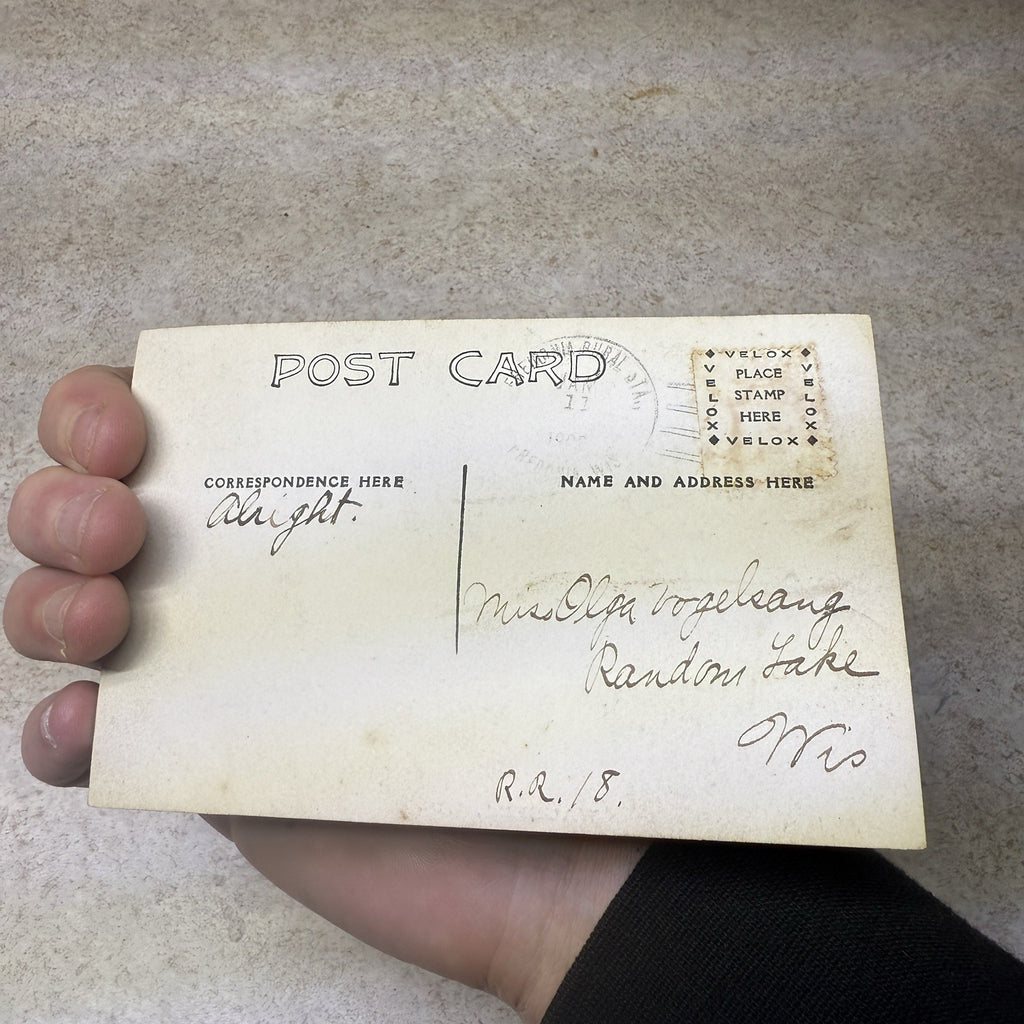 POST CARD
RURAL STA.
JAN
11
FREDONIA, WIS.
VELOX
VELOX
VELOX
PLACE
STAMP
HERE
VELOX
CORRESPONDENCE HERE
NAME AND ADDRESS HERE
Alright.
Miss Olga Vogelsang
Random Lake
Wis
R.R. 18.